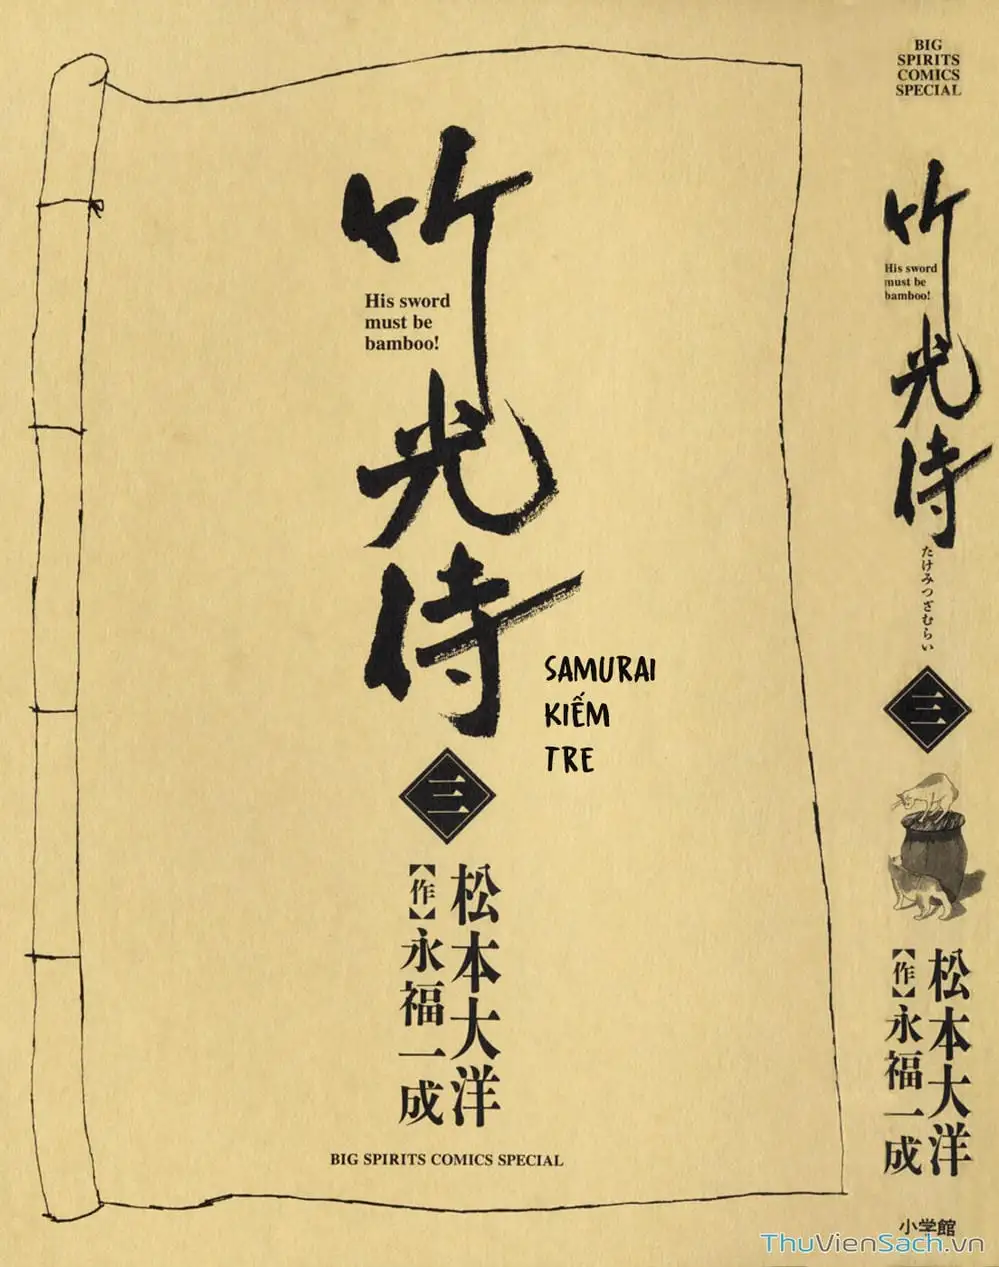 竹光侍
His sword
must be
bamboo!
SAMURAI
KIẾM
TRE
三
松本大洋
【作】永福一成
BIG SPIRITS COMICS SPECIAL
BIG
SPIRITS
COMICS
SPECIAL
竹光侍
His sword
must be
bamboo!
たけみつざむらい
三
松本大洋
【作】永福一成
小学館
ThuVienSach.vn